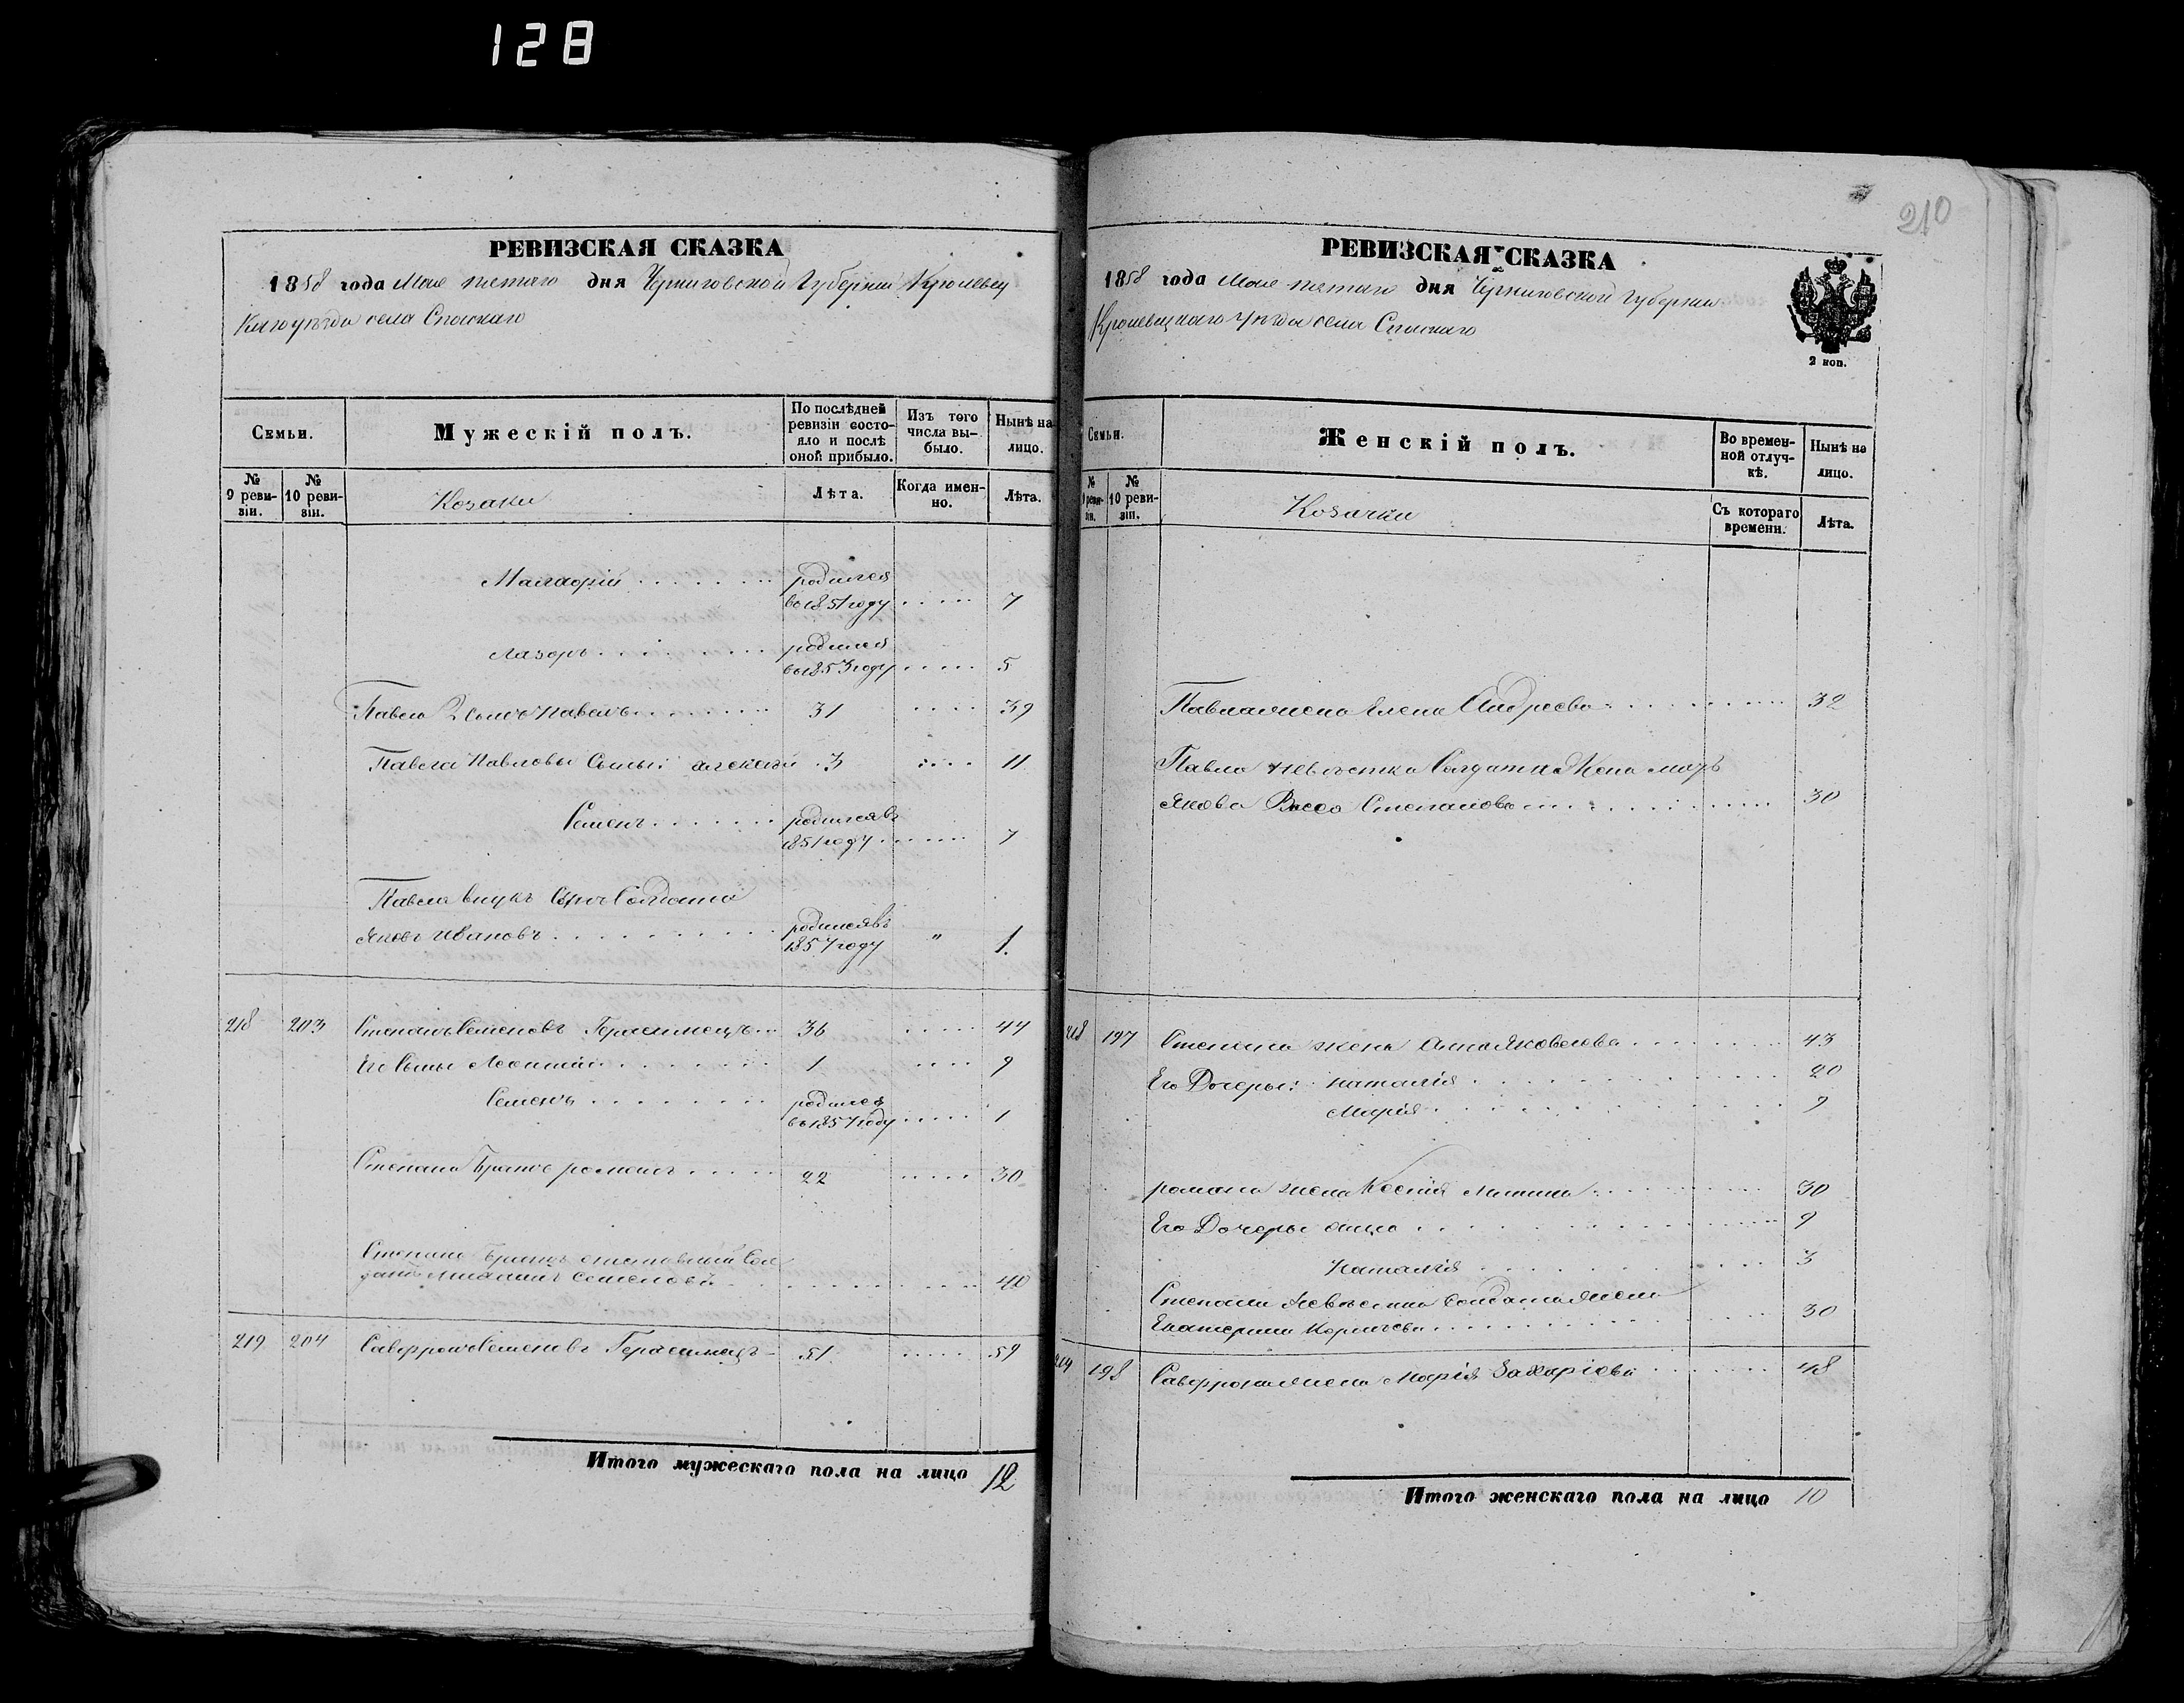 128
210
РЕВИЗСКАЯ СКАЗКА
1858 года Мая пятаго дня Черниговской Губерніи Кролевец
каго уезда села Спаскаго
Семьи.
Мужескій полъ.
По послѣдней ревизіи состо-
яло и послѣ
оной прибыло.
Изъ того
числа вы-
было.
Нынѣ на
лицо.
№
9 реви-
зіи.
№
10 реви-
зіи.
Козаки
Лѣта.
Когда имен-
но.
Лѣта.
родился
во 1851 году 7
Лазоръ родился
во 1853 году 5
Павла 2 сынъ Павелъ 31 39
Павла Павловы Сыны: алексей 3 11
Семенъ родился въ
1851 году 7
Павла внукъ Сынъ Солдата
Яковъ Ивановъ родился въ
1857 году " 1.
218 203 Степанъ Семеновъ Герасимецъ 36 44
Его Сыны Леонтий 1 9
Семенъ родился
во 1857 году 1
Степана Братъ романъ 22 30
Степана Братъ отставный Сол
датъ Семеновъ 40
219 204 Сафронъ Семеновъ Герасимецъ 51 59
Итого мужескаго пола на лицо 12
РЕВИЗСКАЯ СКАЗКА
1858 года Мая пятаго дня Черниговской Губерніи
Кролевецкаго уезда села Спаскаго
2 коп.
Семьи.
Женскій полъ.
Во времен-
ной отлуч-
кѣ.
Нынѣ на
лицо.
№
9 реви-
зіи.
№
10 реви-
зіи.
Козачки
Съ котораго
времени.
Лѣта.
Павла жена Елена Андреева 32
Павла невѣстка Солдатка Жена
Якова Степанова 30
218 197 Степана жена Анна Яковлева 43
Его Дочеры: наталія 20
Марія 9
романа жена Ксенія Никитина 30
Его Дочеры анна 9
Наталія 3
Степана Невѣстка Солдата Жена
Екатерина Корнѣева 30
219 198 Сафрона жена Марія Захаріева 48
Итого женскаго пола на лицо 10